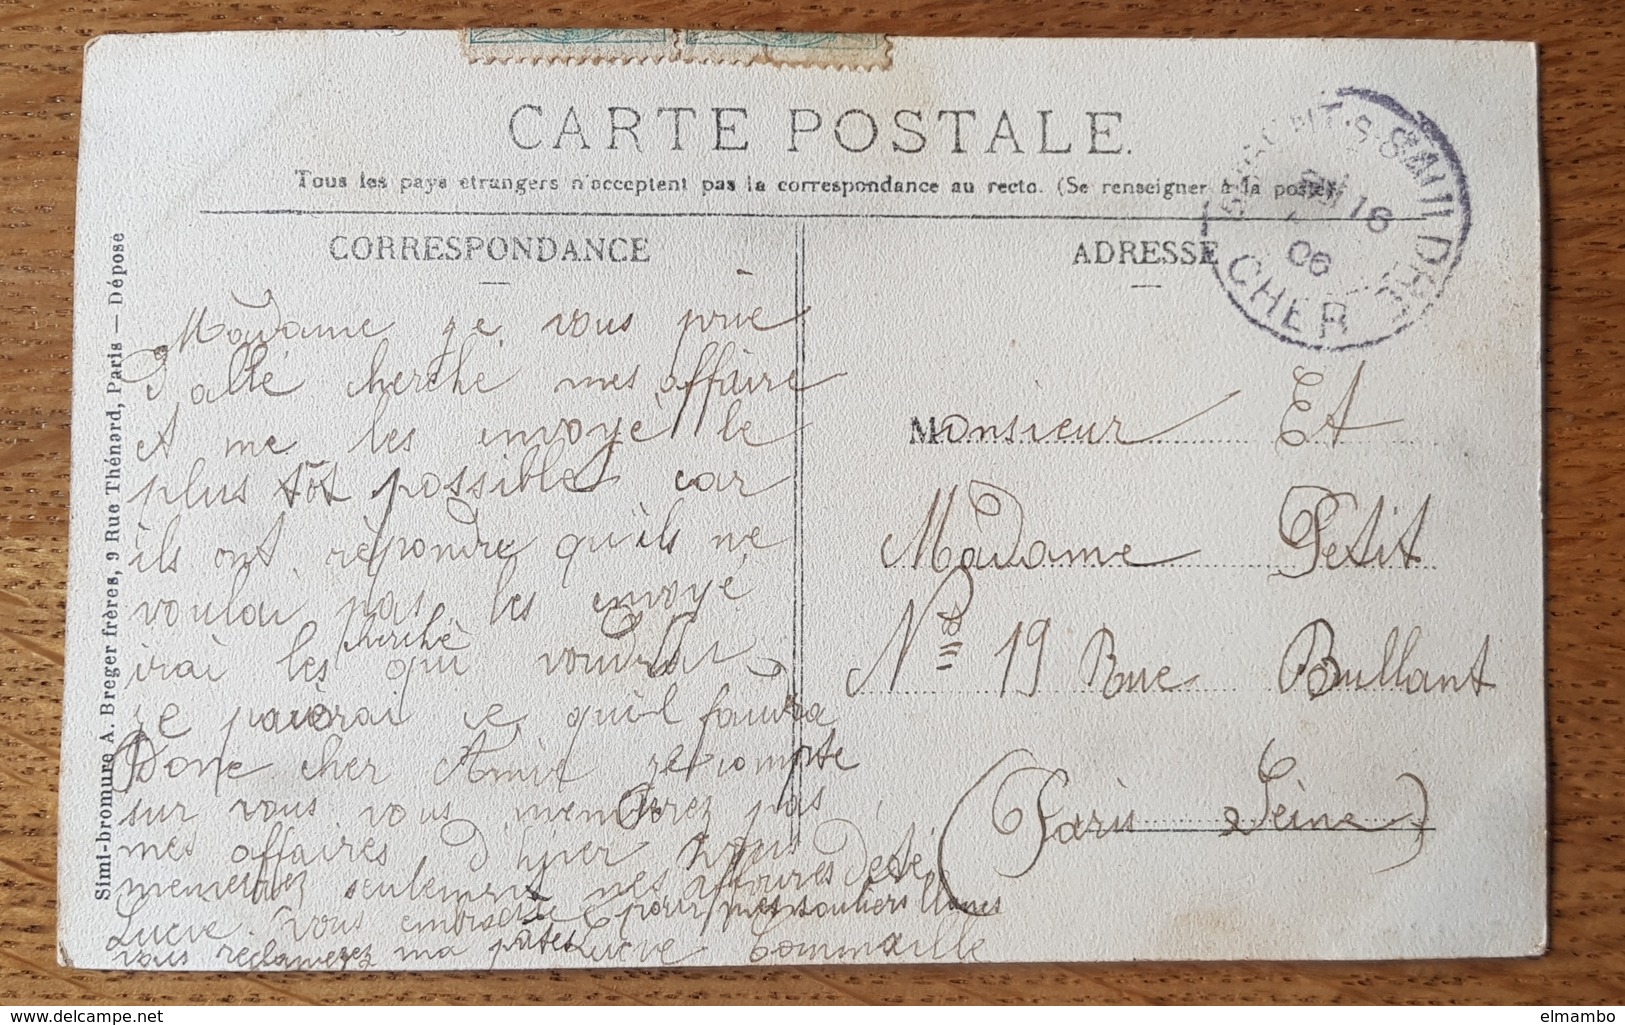 CARTE POSTALE.
Tous les pays etrangers n'acceptent pas la correspondance au recto. (Se renseigner à la poste)
CORRESPONDANCE
Madame ge vous prie
d'allé cherché mes affaire
et me les envoyé le
plus tôt possible car
ils ont repondre qu'ils ne
voulai pas les envoyé
cherché
irai les qui voudra
ge paierai ce qu'il faudra
Donc cher Amie ge compte
sur vous vous
pas
mes affaires d'hiver vous
seulement mes affaires d'eté
Lucie. Vous
pour mes souliers blancs
vous reclamerez ma
Lucie Commaille
ADRESSE
Monsieur Et
Madame Petit
No 19 Rue Bullant
(Paris Seine)
CHER
18
06
Simi-bromure A. Breger frères, 9 Rue Thénard, Paris — Dépose
delcampe.net
elmambo